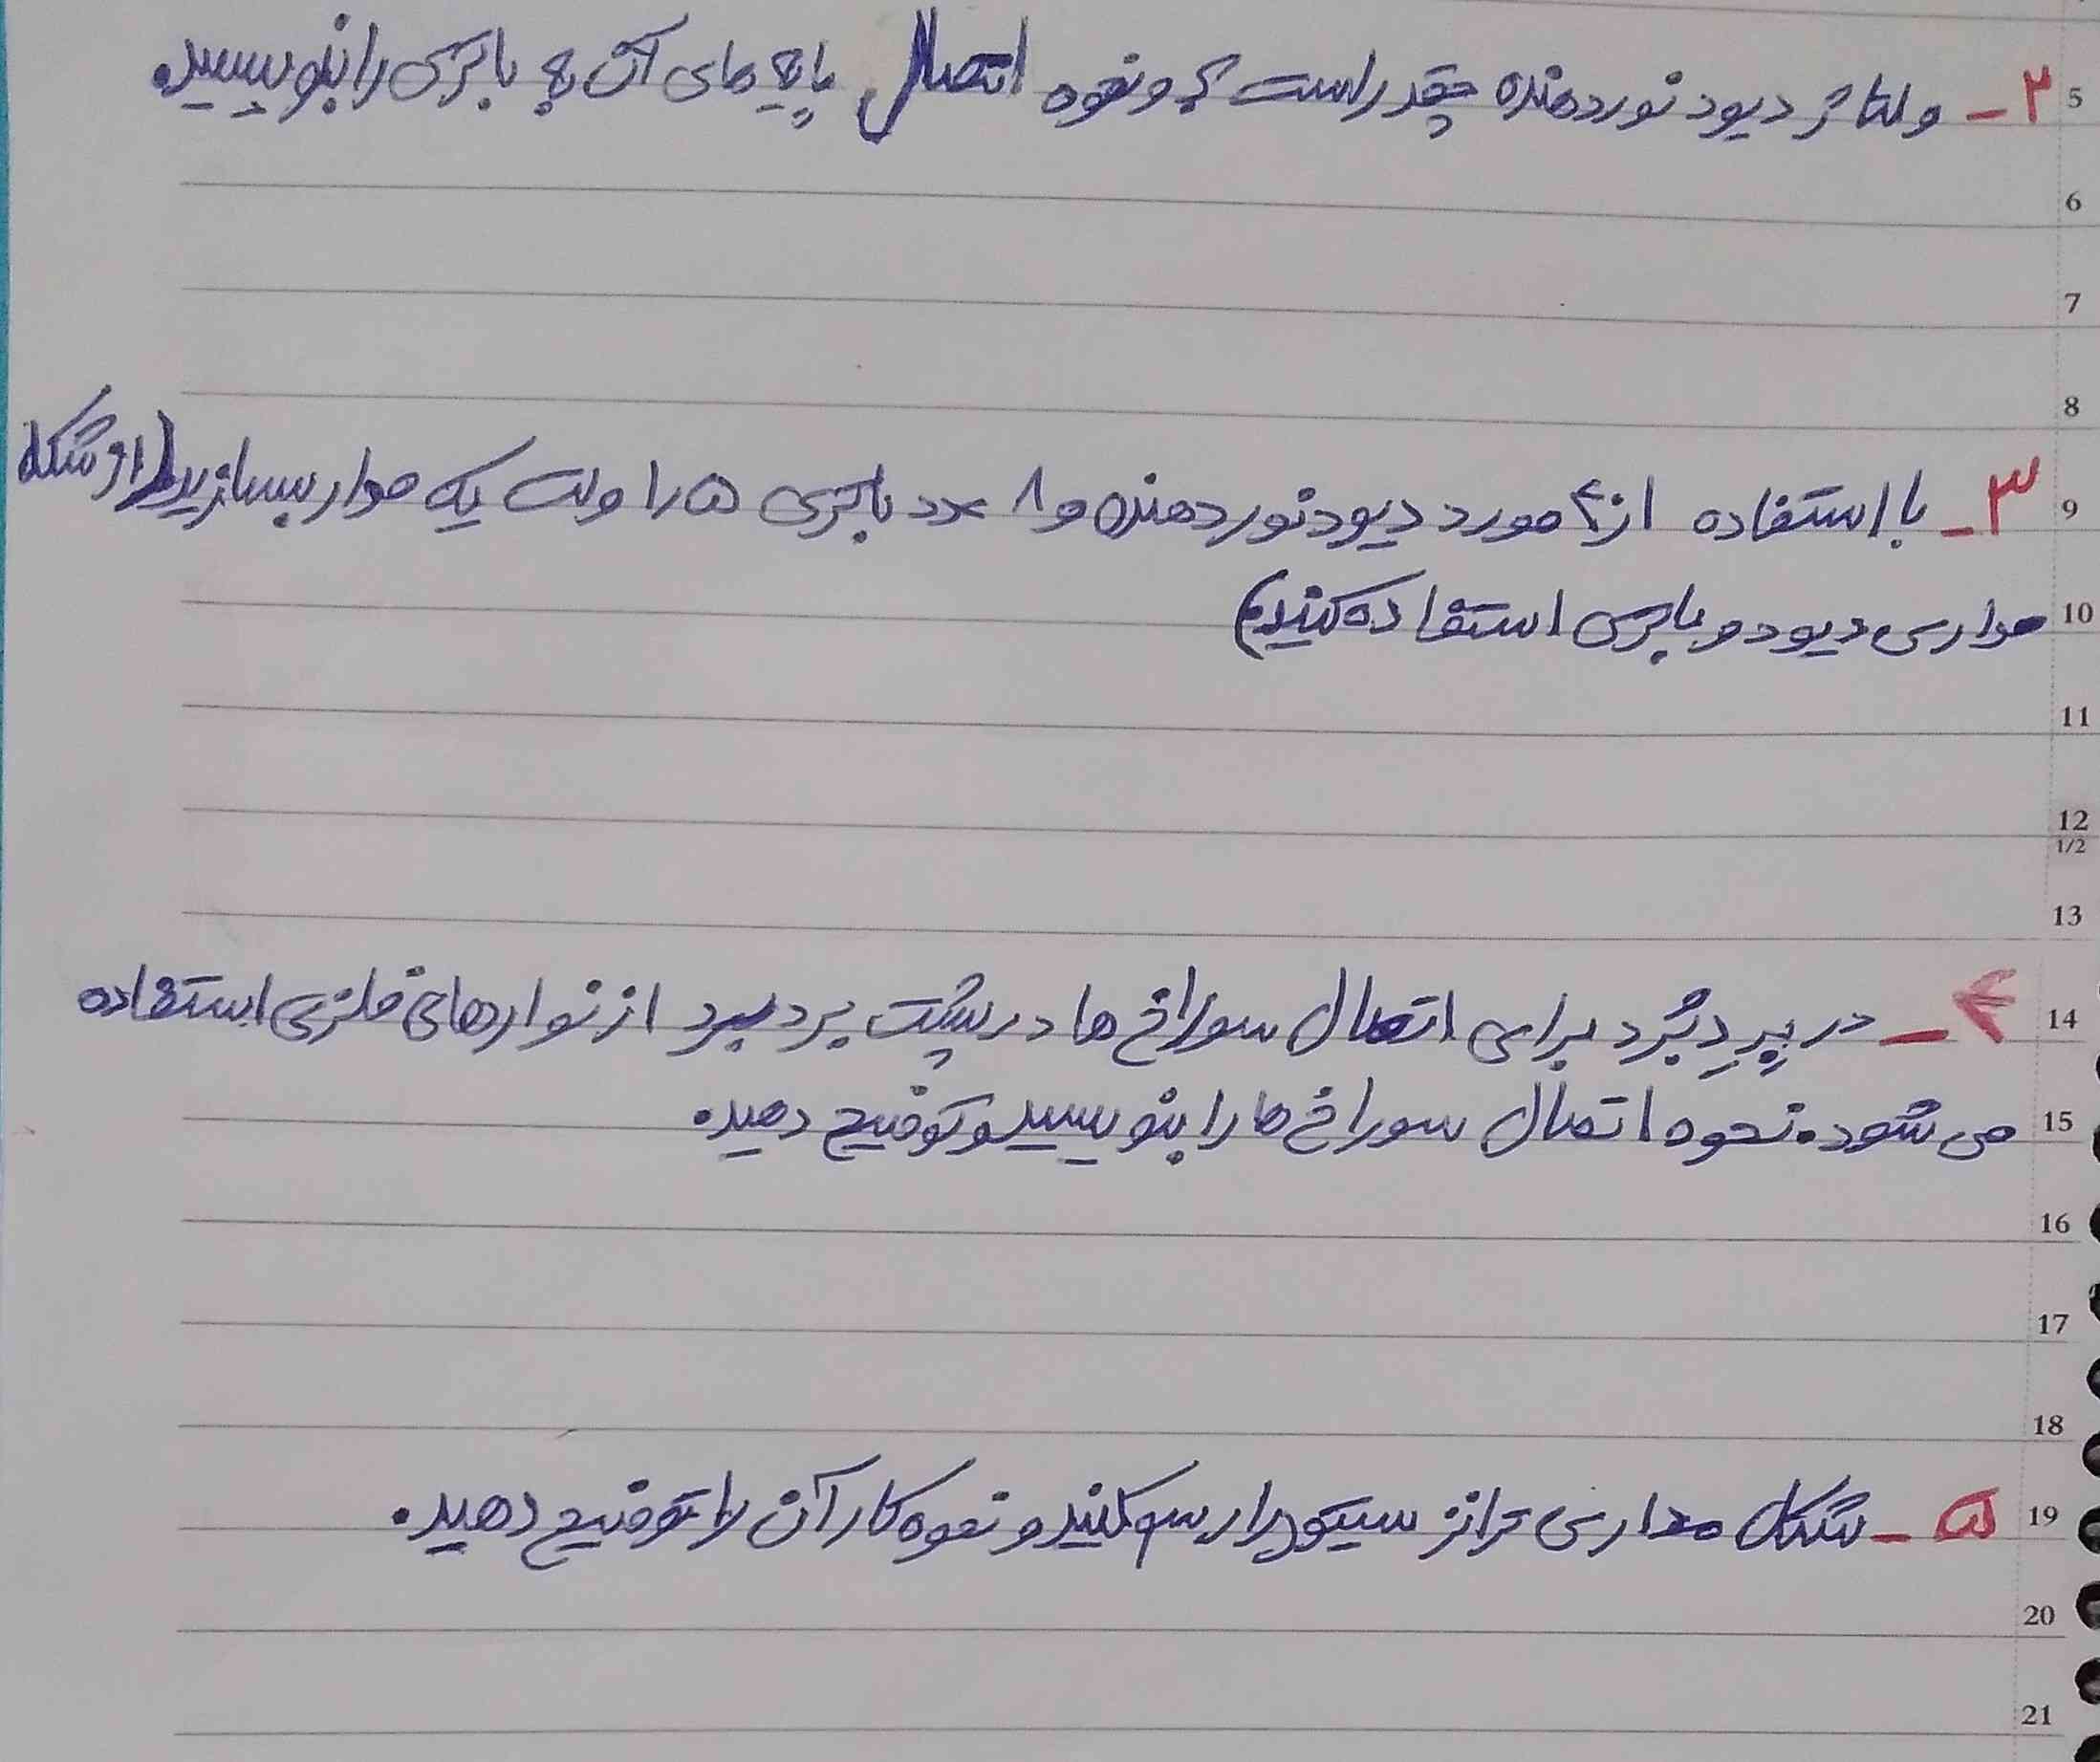 5 ۲- ولتاژ دیود نوردهنده چقدر است؟ و نحوه اتصال پایه های آن به باتری را بنویسید.
6
7
8
9 ۳- با استفاده از ۴ مورد دیود نوردهنده و ۸ عدد باتری ۱٫۵ ولت یک مدار بسازید(از شکل
10 مداری دیود و باتری استفاده کنید)
11
12
1/2
13
14 ۴- در بِردِبُرد برای اتصال سوراخ ها در پشت بردبرد از نوارهای فلزی استفاده
15 می شود. نحوه اتصال سوراخ ها را بنویسید و توضیح دهید.
16
17
18
19 ۵- شکل مداری ترانزسیتور را رسم کنید و نحوه کار آن را توضیح دهید.
20
21